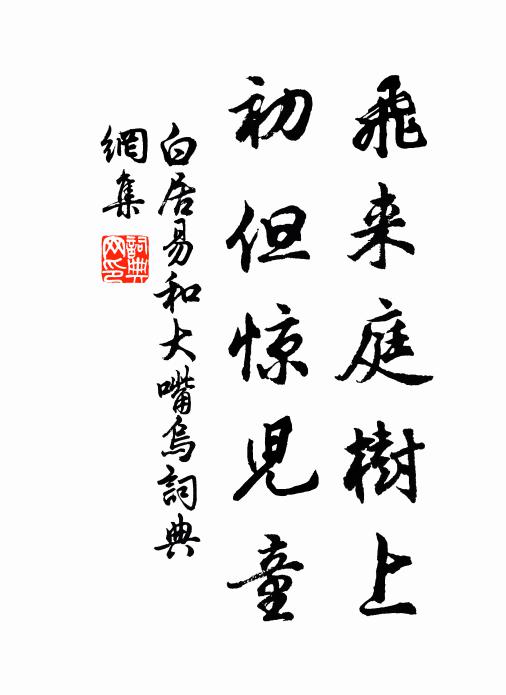 飛来庭樹上
初但惊児童
白居易和大嘴烏詞典
網集
詞典
网印